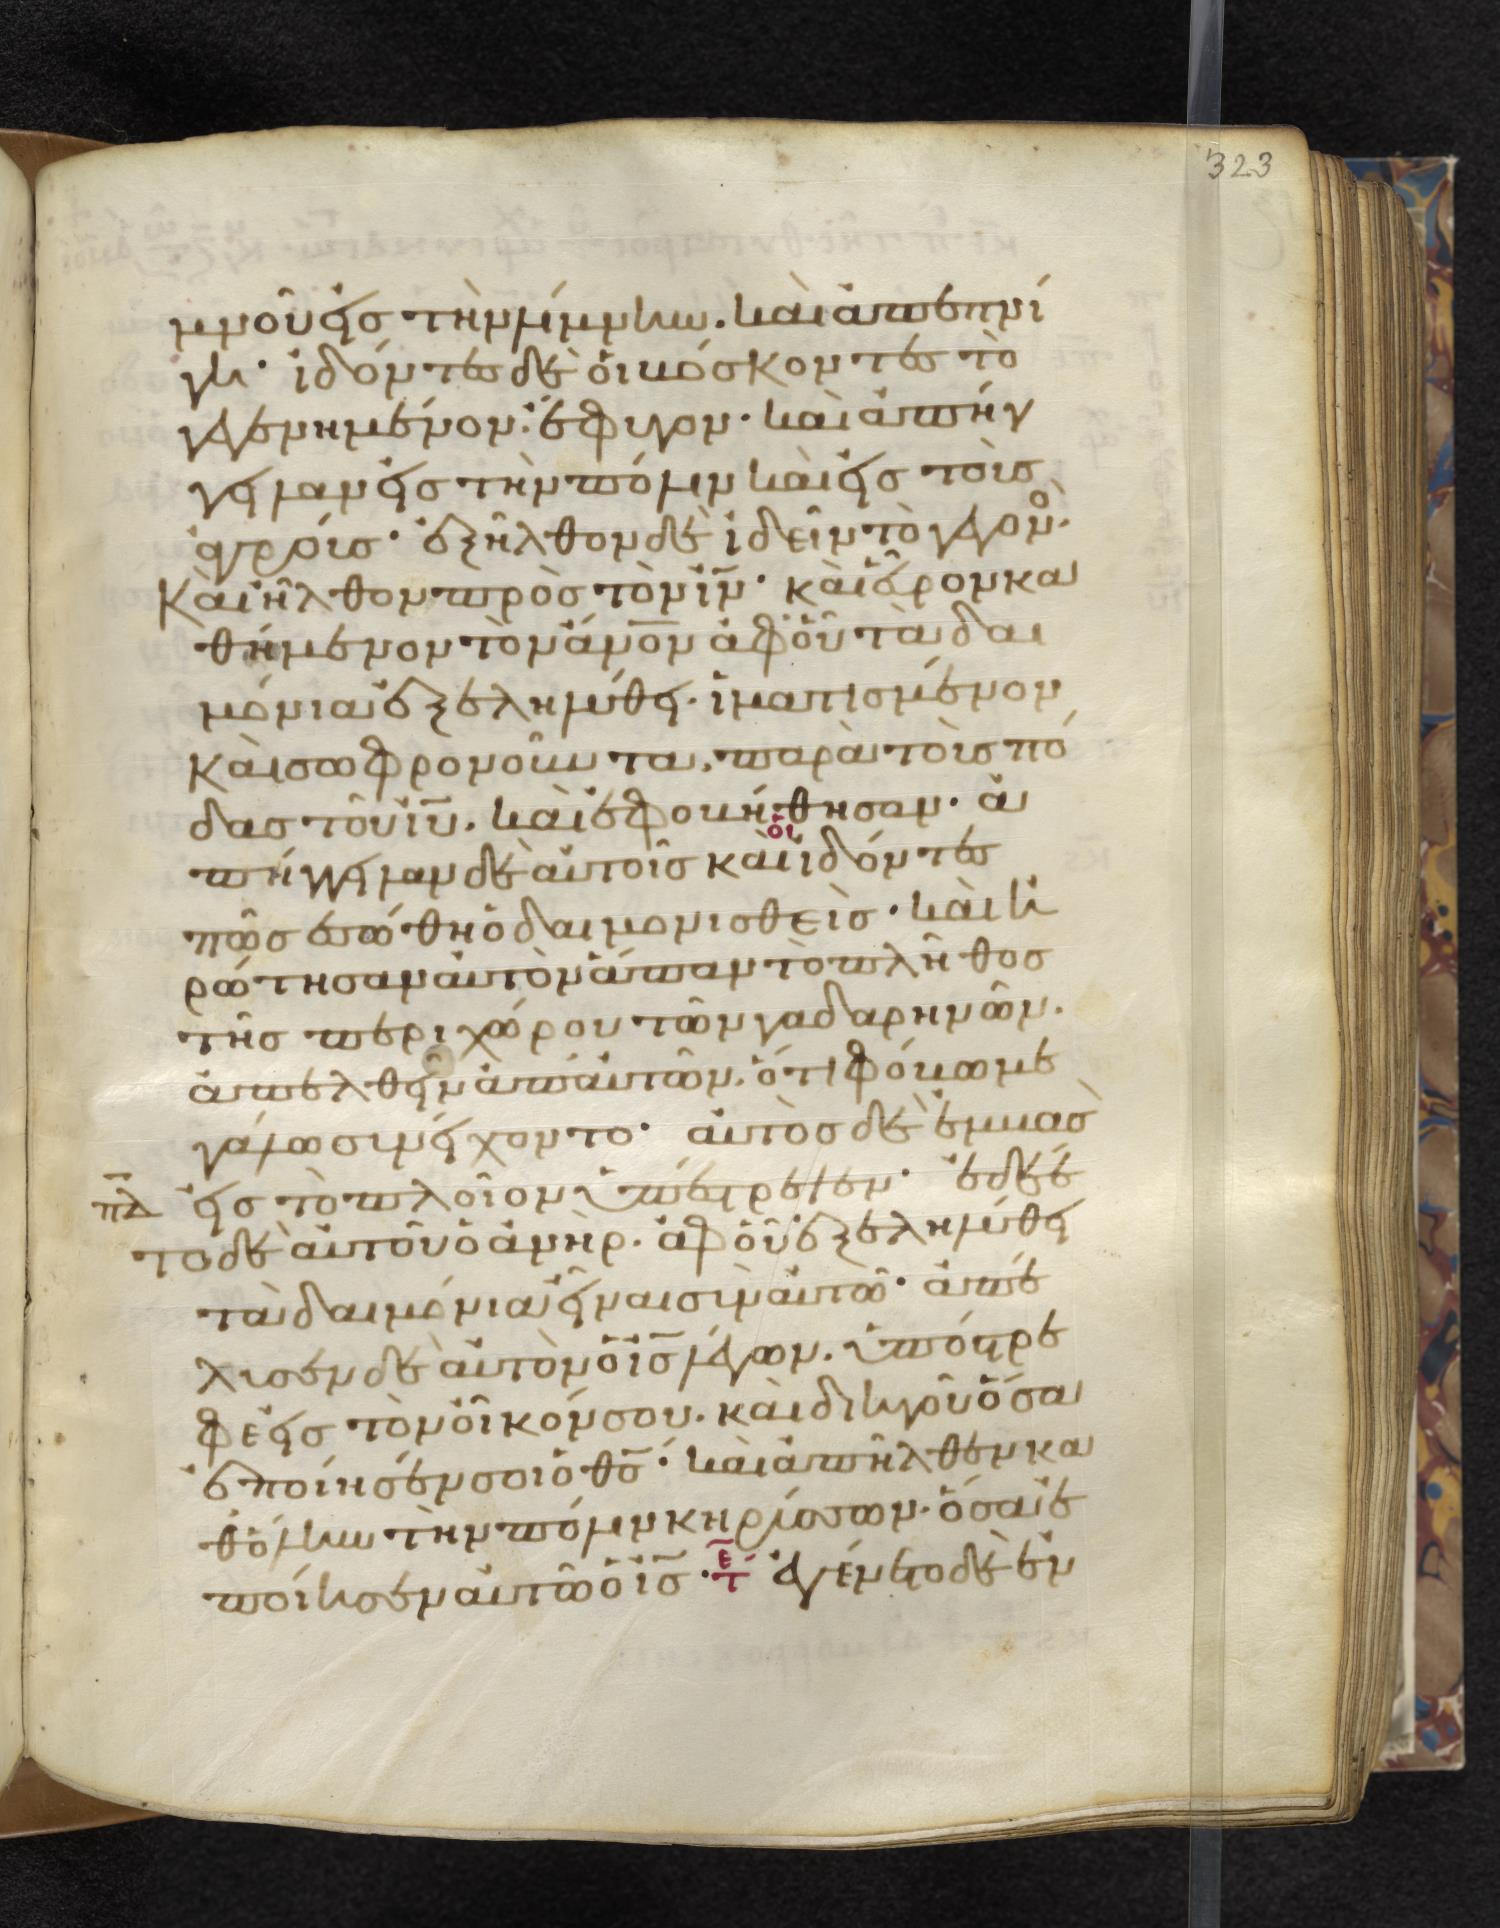 323
μνοῦ εἰς τὴν λίμνην. καὶ ἀπεπνί
γη· ἰδόντες δὲ οἱ βόσκοντες τὸ
γεγενημένον· ἔφυγον· καὶ ἀπήγ
γειλαν εἰς τὴν πόλιν καὶ εἰς τοὺς
ἀγρούς· ἐξῆλθον δὲ ἰδεῖν τὸ γεγονός.
Καὶ ἦλθον πρὸς τὸν ιν̅· καὶ εὗρον κα
θήμενον τὸν ἄνο̅ν ἀφ' οὗ τὰ δαι
μόνια ἐξεληλύθει. ἱματισμένον
καὶ σωφρονοῦντα, παρὰ τοὺς πό
δας τοῦ ιυ̅. καὶ ἐφοβήθησαν· ἀ
πήγγειλαν δὲ αὐτοῖς καὶ οἱ ἰδόντες
πῶς ἐσώθη ὁ δαιμονισθεὶς· καὶ ἠ
ρώτησαν αὐτὸν ἅπαν τὸ πλῆθος
τῆς περιχώρου τῶν γαδαρηνῶν.
ἀπελθεῖν ἀπ' αὐτῶν. ὅτι φόβω με
γάλω συνείχοντο· αὐτὸς δὲ ἐμβὰς
πδ̅ εἰς τὸ πλοῖον ὑπέστρεψεν· ἐδέε
το δὲ αὐτοῦ ὁ ἀνὴρ. ἀφ' οὗ ἐξεληλύθει
τὰ δαιμόνια εἶναι σὺν αὐτῶ· ἀπέ
λυσεν δὲ αὐτὸν ὁ ισ̅ λέγων. ὑπόστρε
φε εἰς τὸν οἶκόν σου. καὶ διηγοῦ ὅσα
ἐποίησέν σοι ὁ θσ̅· καὶ ἀπῆλθεν κα
θ' ὅλην τὴν πόλιν κηρύσσων. ὅσα ἐ
ποίησεν αὐτῶ ὁ ισ̅· τε̅ ἐγένετο δὲ ἐν